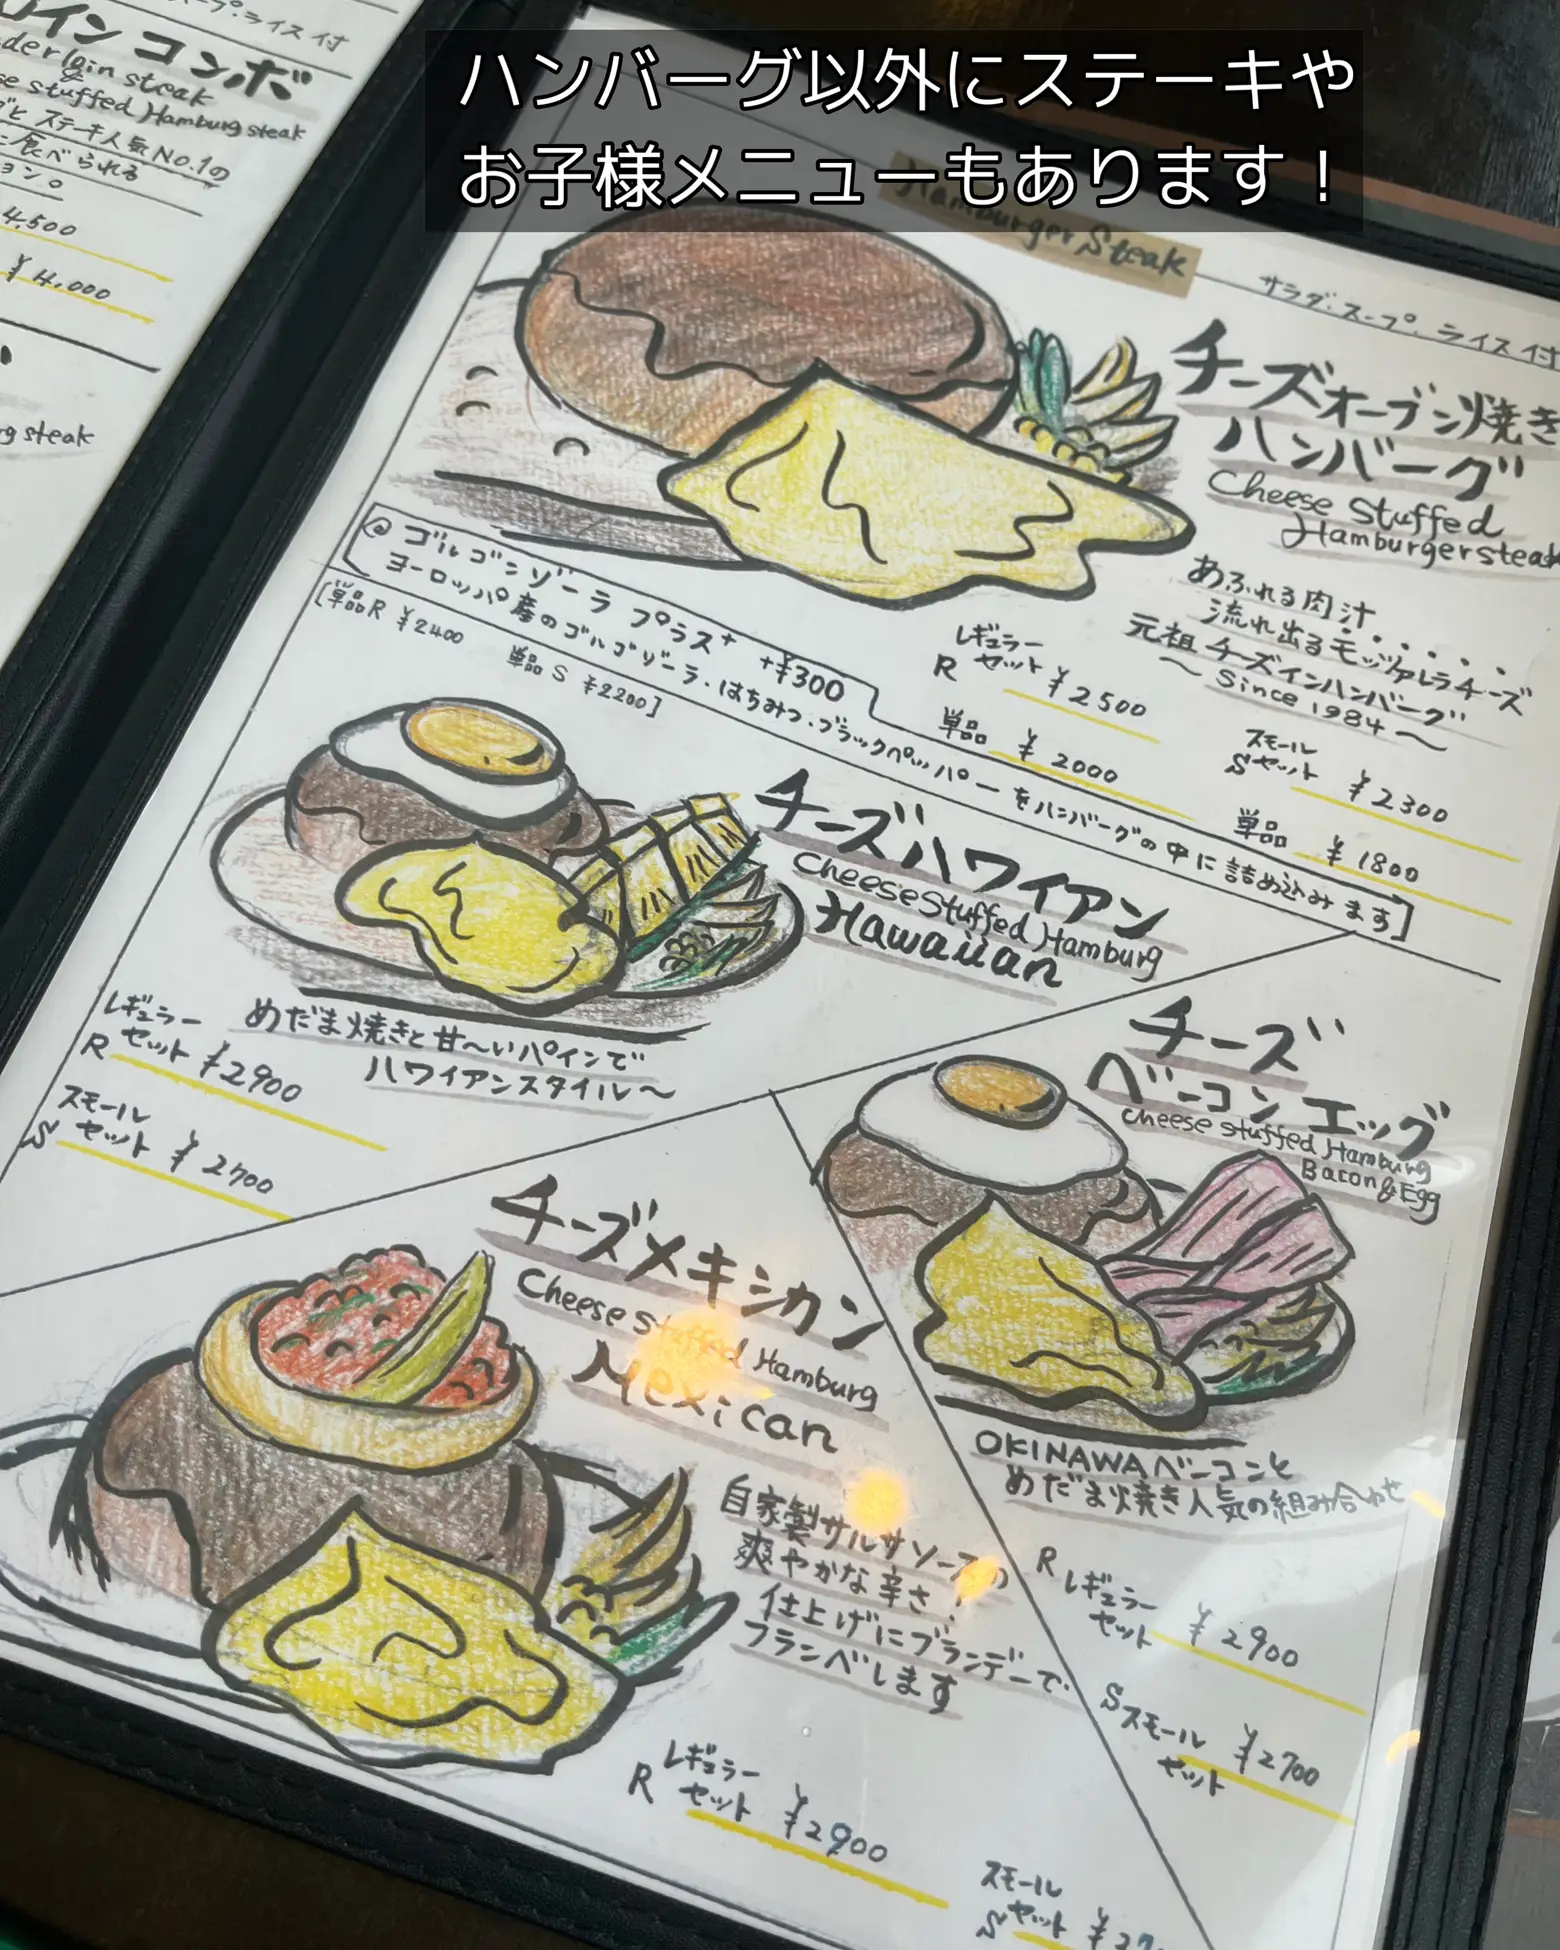 ハンバーグ以外にステーキや
お子様メニューもあります！
スープ・ライス付
イン コンボ
steak
stuffed Hamburg steak
ステーキ人気No.1の
食べられる
4,500
¥4,000
steak
Hamburger Steak
サラダ・スープ・ライス付
チーズオーブン焼き
ハンバーグ
Cheese Stuffed
Hamburgersteak
あふれる肉汁
流れ出るモッツァレラチーズ
元祖 チーズインハンバーグ
〜 Since 1984 〜
レギュラー
R セット ¥2500
単品 ¥2000
スモール
S セット ¥2300
単品 ¥1800
@ ゴルゴンゾーラ プラス+ +¥300
ヨーロッパ産のゴルゴゾーラ・はちみつ・ブラックペッパーをハンバーグの中に詰め込みます]
[単品R ¥2400 単品S ¥2200]
チーズハワイアン
Cheese Stuffed Hamburg
Hawaiian
めだま焼きと甘〜いパインで
ハワイアンスタイル〜
レギュラー
R セット ¥2900
スモール
S セット ¥2700
チーズ
ベーコンエッグ
Cheese stuffed Hamburg
Bacon & Egg
OKINAWAベーコンと
めだま焼き人気の組み合わせ
R レギュラー
セット ¥2900
S スモール
セット ¥2700
チーズメキシカン
Cheese stuffed Hamburg
Mexican
自家製サルサソースの
爽やかな辛さ！
仕上げにブランデーで
フランベします
レギュラー
R セット ¥2900
スモール
S セット